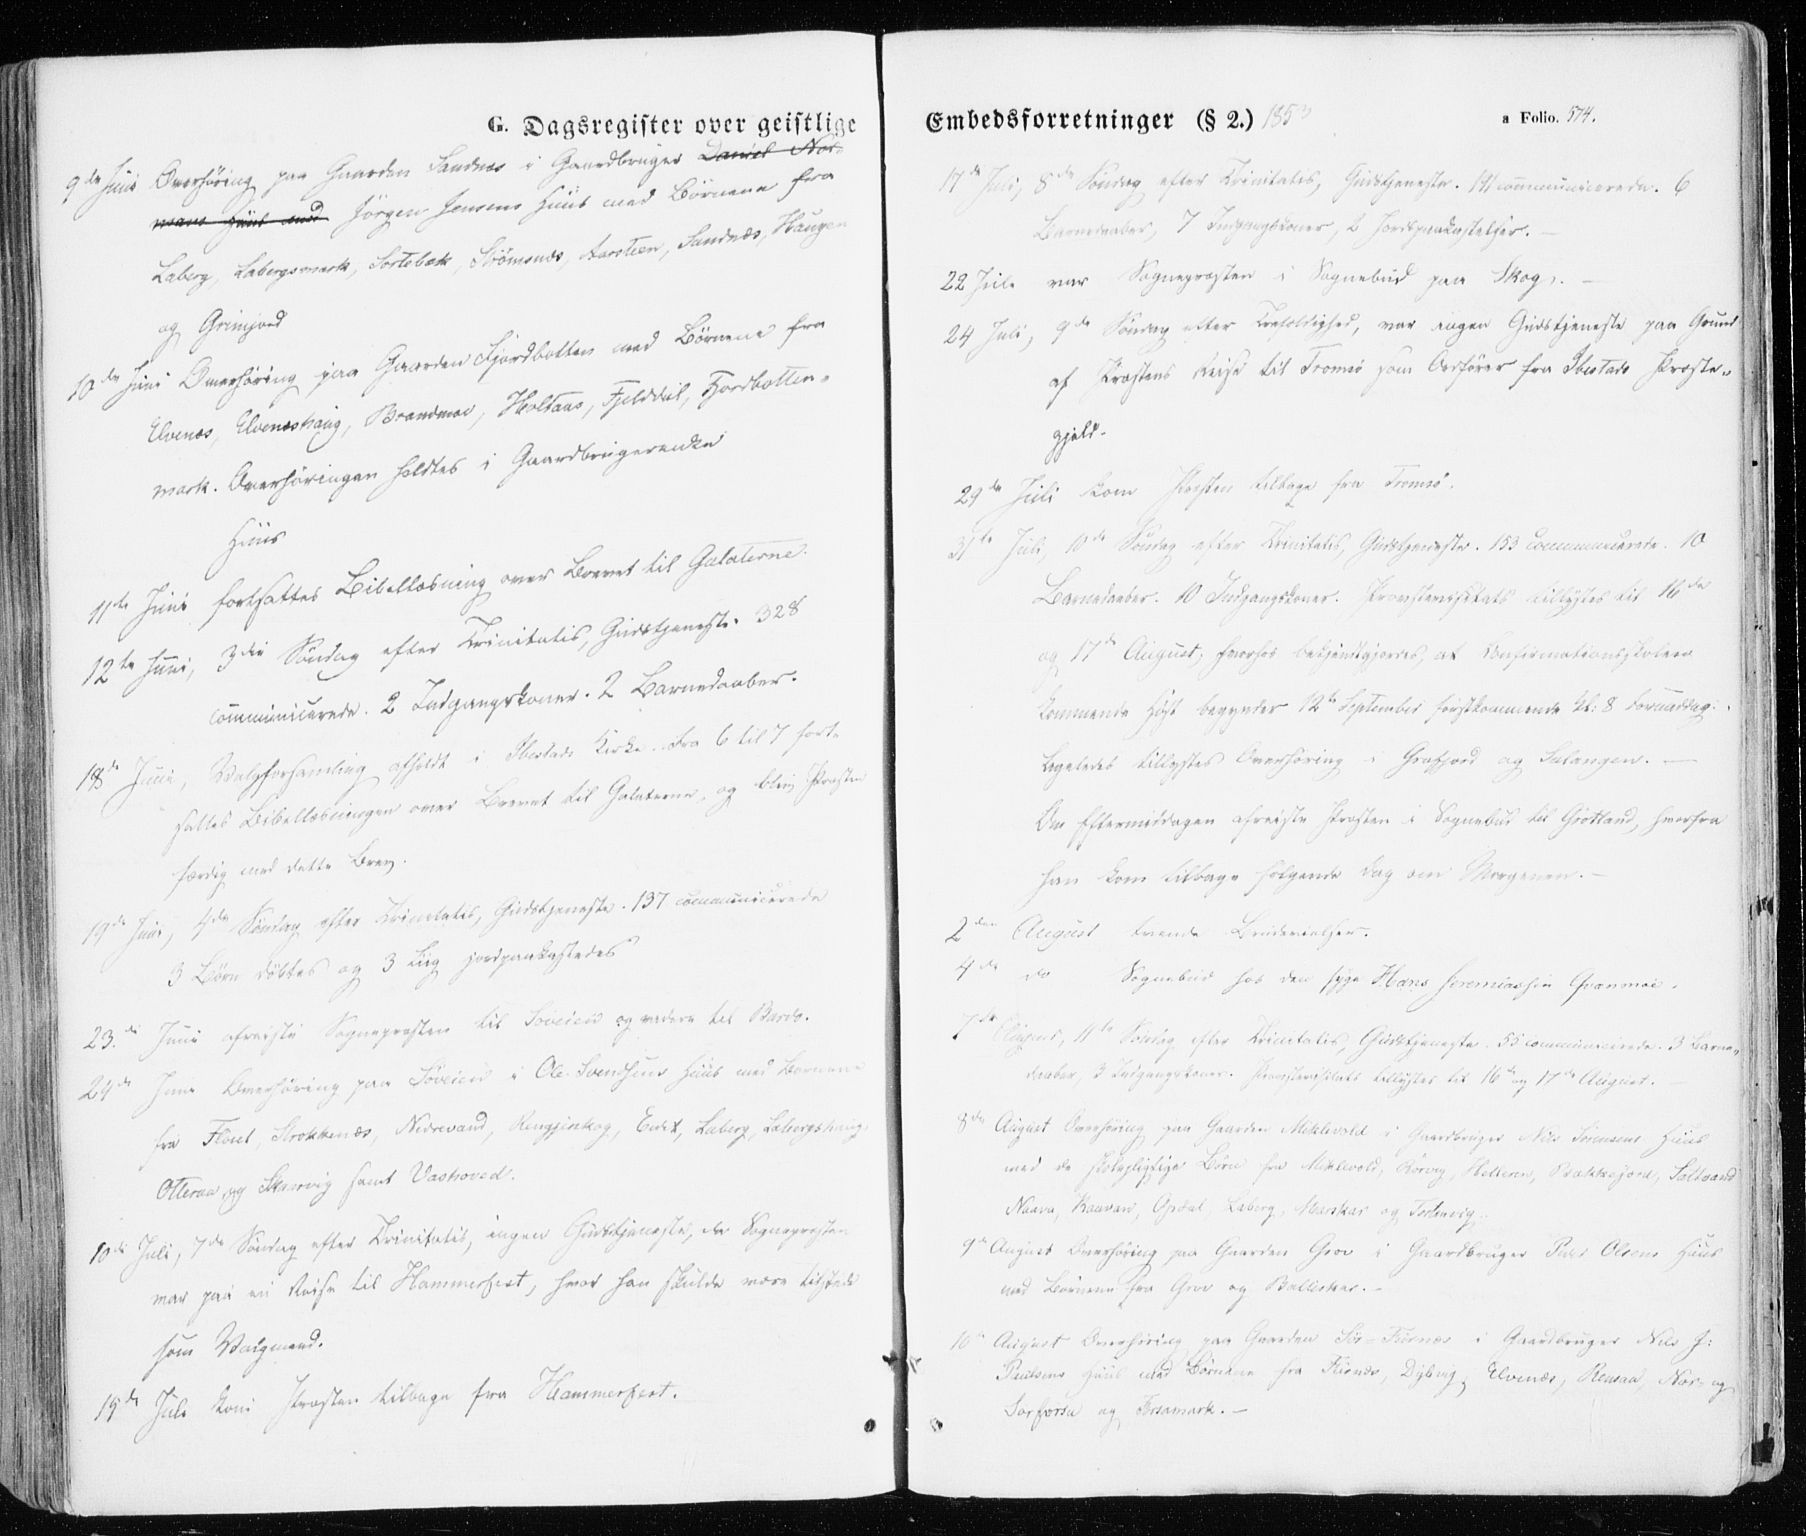 G. Dagsregister over geistlige
9de Juni Overhöring paa Gaarden Sandnes i Gaardbruger Daniel Nor-
mans Huus med Jörgen Jensens Huus med Börnene fra
Laberg, Labergsmark, Sortebæk, Strömsnes, Aarsteen, Sandnæs, Haugen
og Grinjord
10de Juni Overhöring paa Gaarden Fjordbotten med Börnene fra
Elvenes, Elveneshaug, Brandmoe, Holtaas, Fjelddal, Fjordbotten-
mark. Overhöringen holdtes i Gaardbrugerenken
Huus
11te Juni fortsattes Bibellæsning over Brevet til Galaterne.
12te Juni, 3die Söndag efter Trinitatis, Gudstjeneste. 328
communicerede. 2 Indgangskoner. 2 Barnedaaber.
18de Juni, Valgforsamling afholdt i Ibestads Kirke. Fra 6 til 7 fort-
sattes Bibellæsningen over Brevet til Galaterne, og blev Præsten
færdig med dette Brev.
19de Juni, 4de Söndag efter Trinitatis, Gudstjeneste. 137 communicerede
3 Börn döbtes og 3 Liig jordpaakastedes
23.de Juni afreiste Sognepræsten til Söveien og videre til Bardo.
24de Juni Overhöring paa Söveien i Ole Svendsens Huus med Börnene
fra Floret, Strokkenæs, Nedrevand, Rengjeskog, Endet, Laberg, Labergshaug,
Otteraa og Skaarvig samt Vashoved.
10de Juli, 7de Söndag efter Trinitatis, ingen Gudstjeneste, da Sognepræsten
var paa en Reise til Hammerfest, hvor han skulde være tilstede
som Valgmand.
15de Juli kom Præsten tilbage fra Hammerfest.
Embedsforretninger (§ 2.) 1853
a Folio. 574.
17de Juli, 8de Söndag efter Trinitatis, Gudstjeneste. communicerede. 6
Barnedaaber, 7 Indgangskoner, 2 Jordpaakastelser. —
22 Juli var Sognepræsten i Sognebud paa Skog. —
24 Juli, 9de Söndag efter Trefoldighed, var ingen Gudstjeneste paa Grund
af Præstens Reise til Tromsö som Ordförer fra Ibestads Præste-
gjeld.
29de Juli kom Præsten tilbage fra Tromsö.
31te Juli, 10de Söndag efter Trinitatis, Gudstjeneste. 153 communicerede. 10
Barnedaaber. 10 Indgangskoner. Provstevisitats tillystes til 16de
og 17de August, hvorhos bekjendtgjordes, at Confirmationsskolen
kommende Höst begynder 12te September förstkommende Kl: 8 Formiddag.
Ligeledes tillystes Overhöring i Grafjord og Salangen. —
Om Eftermiddagen afreiste Præsten i Sognebud til Grötland, hvorfra
han kom tilbage fölgende Dag om Morgenen. —
2den August trende Brudevielser.
4de do Sognebud hos den syge Hans Jeremiassen Qvanmoe.
7de August, 11te Söndag efter Trinitatis, Gudstjeneste. 55 communicerede. 3 Barne-
daaber, 3 Indgangskoner. Provstevisitats tillystes til 16de og 17de August. —
8de August Overhöring paa Gaarden Meklevold i Gaardbruger Nils Sörensens Huus
med de skolepligtige Börn fra Meklevold, Rörvig, Helleren, Brakkefjord, Saltvand
Naava, Opdal, Laberg, og
9de August Overhöring paa Gaarden Grov i Gaardbruger Peder Olsens Huus
med Börnene fra Grov og Balleskar. —
10de August Overhöring paa Gaarden Sör-Furnæs i Gaardbruger Nils J:
Paulsens Huus med Börnene fra Furnæs, Dybvig, Elvenæs, Rensaa, Nor- og
Sorforsa og Forsamark. —